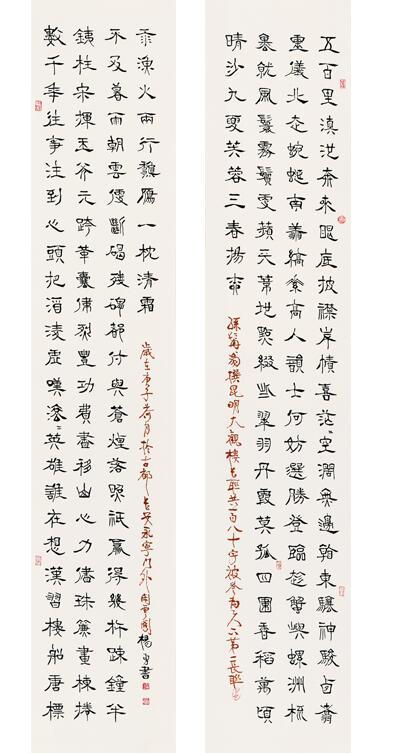 五百里滇池奔來眼底披襟岸幘喜茫〻空闊無邊看東驤神駿西翥
靈儀北走蜿蜒南翥縞素高人韻士何妨選勝登臨趁蟹嶼螺洲梳
裹就風鬟霧鬢更蘋天葦地點綴些翠羽丹霞莫孤四圍香稻萬頃
晴沙九夏芙蓉三春楊柳
孫髯翁撰昆明大觀樓長聯共一百八十字被譽為天下第一長聯
數千年往事注到心頭把酒凌虛嘆滚〻英雄誰在想漢習樓船唐標
鐵柱宋揮玉斧元跨革囊偉烈豐功費盡移山心力儘珠簾畫棟捲
不及暮雨朝雲便斷碣殘碑都付與蒼煙落照祇贏得幾杵疎鐘半
江漁火兩行秋雁一枕清霜
歲在庚子荷月於古都長安永寧門外